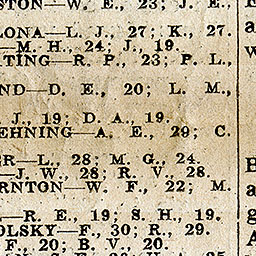 STON—W. E., 23; J. E.,
LONA—L. J., 27; K., 27.
—M. H., 24; J., 19.
TING—R. P., 23; P. L.,
ND—D. E., 20; L. M.,
J., 19; D. A., 19.
EHNING—A. E., 29; C.
R—L., 28; M. G., 24.
—J. W., 28; R. V., 28.
RNTON—W. F., 22; M.
—R. E., 19; S. H., 19.
OLSKY—F., 30; R., 29.
F., 20; B. V., 20.